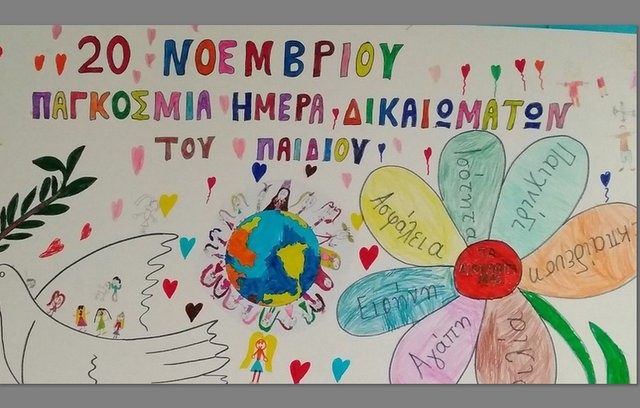 20 ΝΟΕΜΒΡΙΟΥ
ΠΑΓΚΟΣΜΙΑ ΗΜΕΡΑ ΔΙΚΑΙΩΜΑΤΩΝ
ΤΟΥ ΠΑΙΔΙΟΥ
Ασφάλεια
Παιχνίδι
Εκπαίδευση
Ειρήνη
Αγάπη